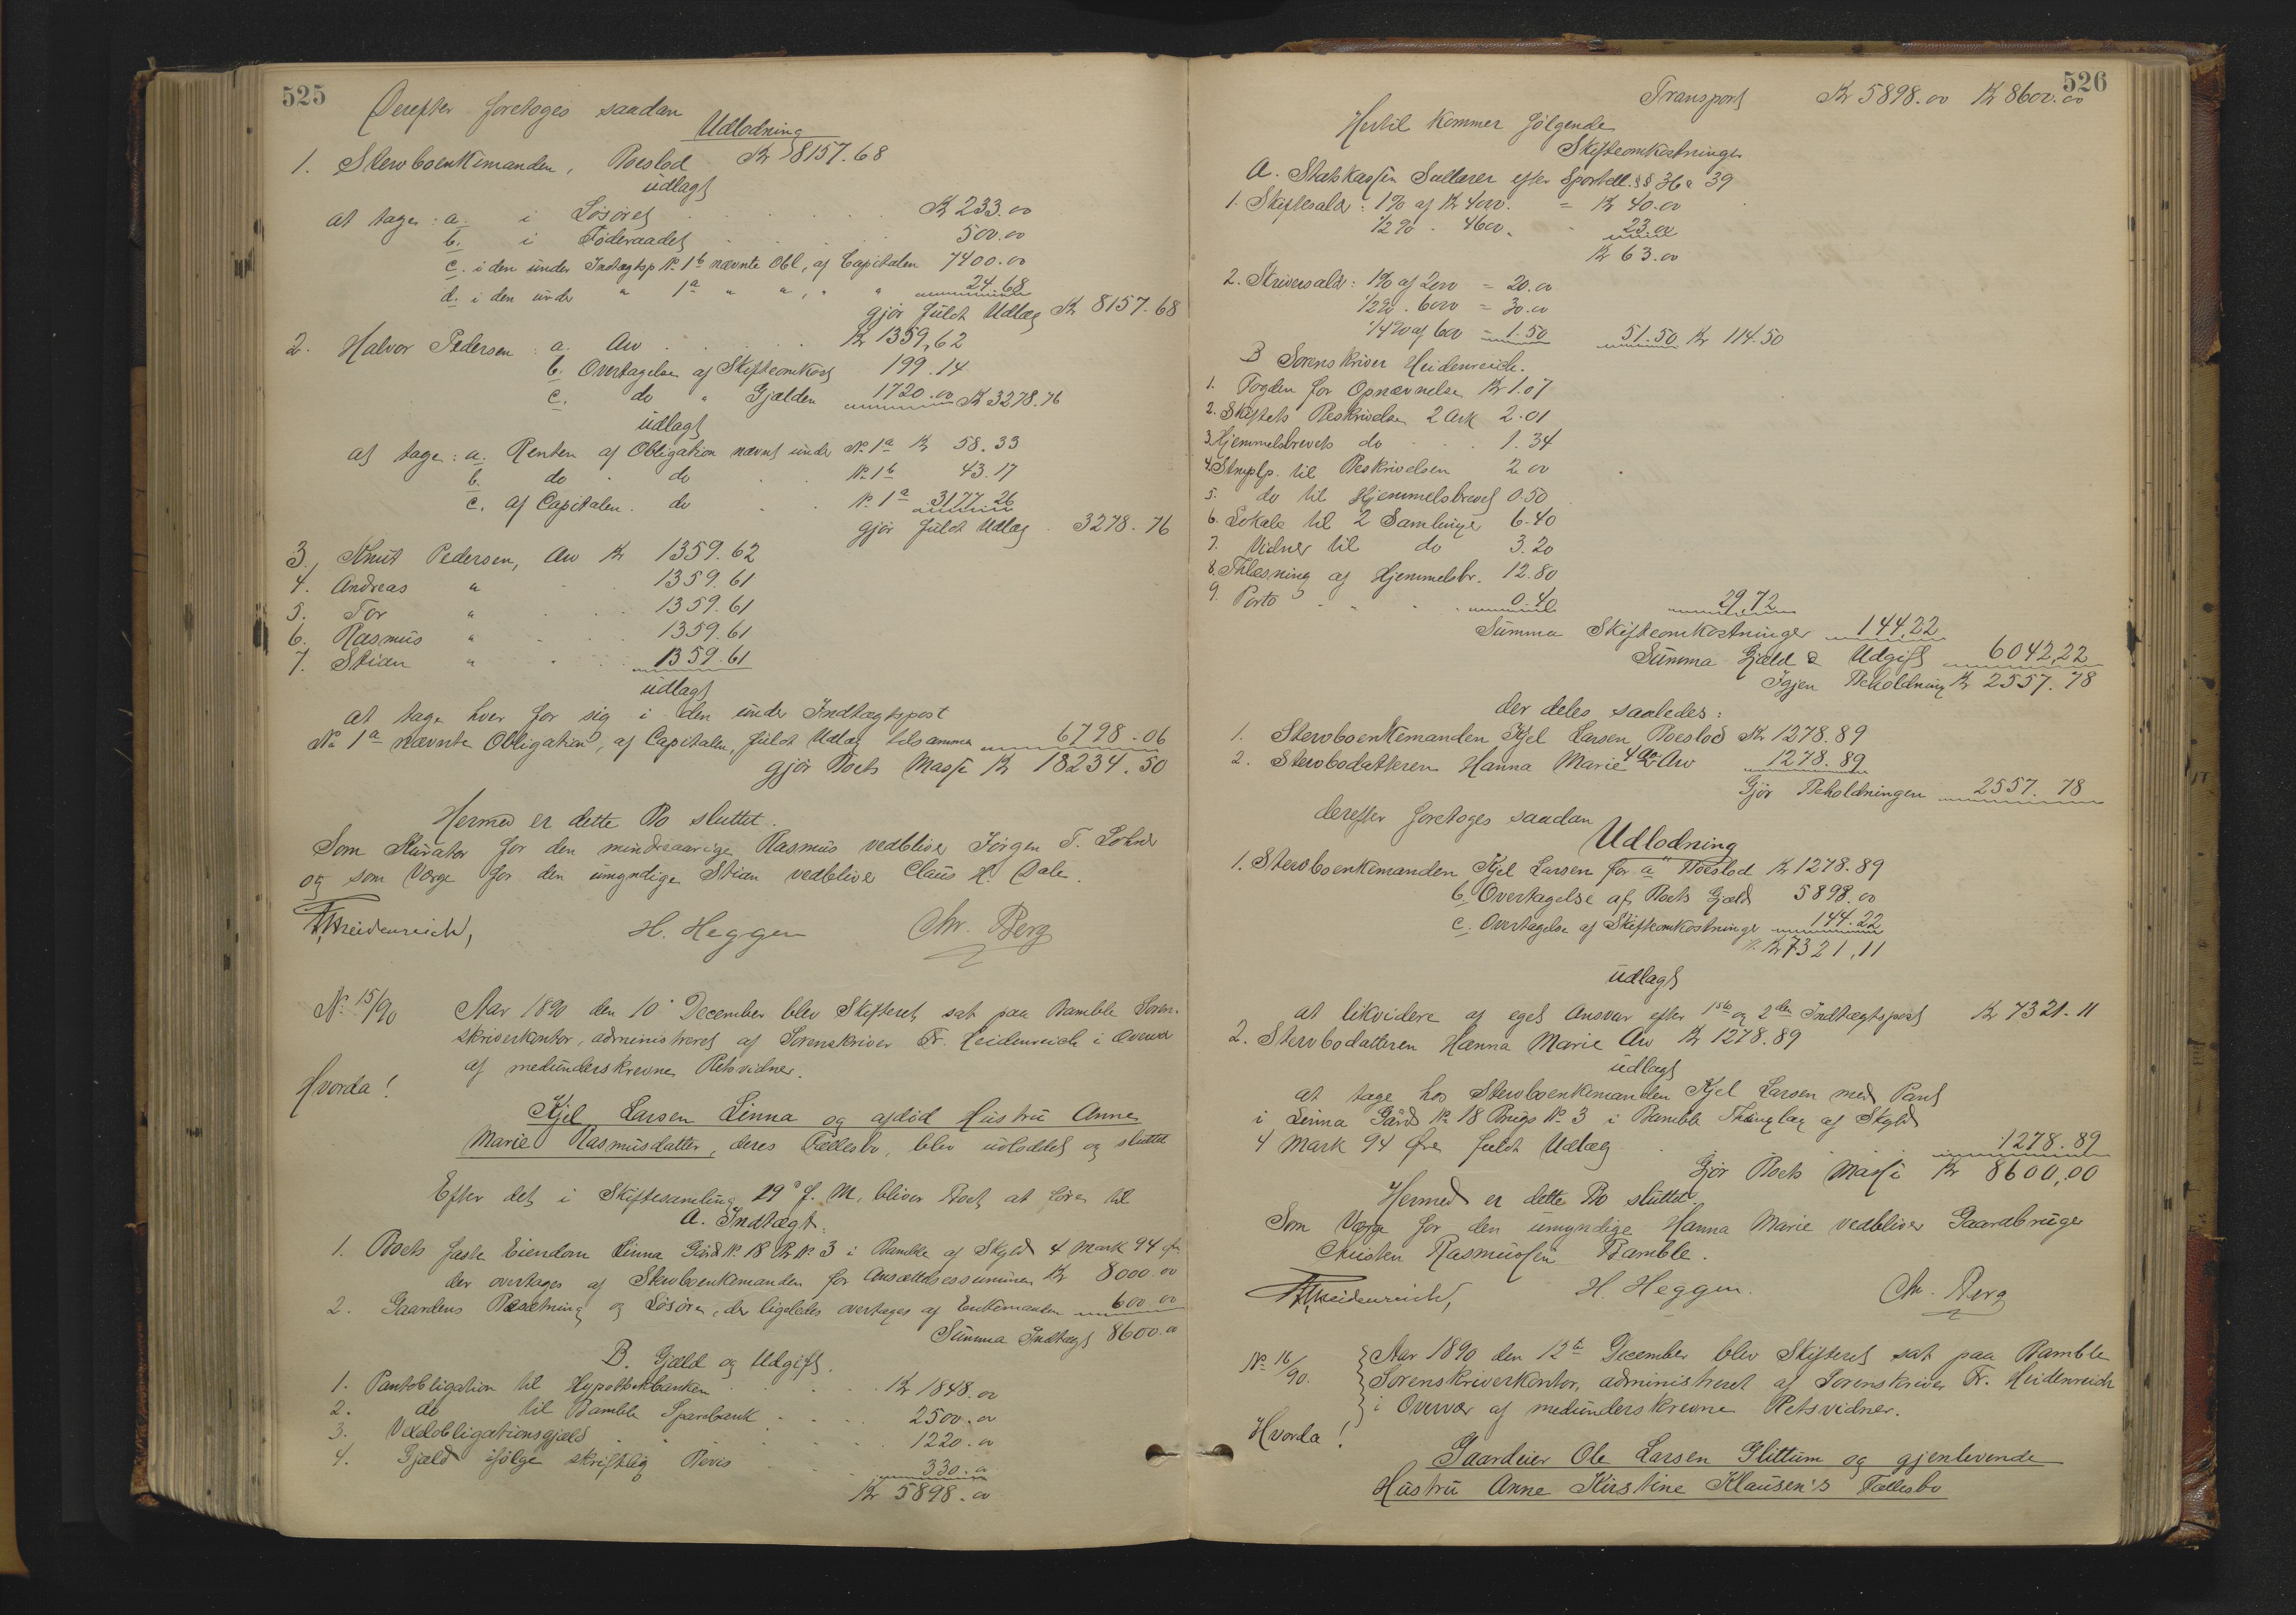 525
Derefter foretoges saadan
Udlodning
1. Stervboenkemanden, Boeslod Kr 8157.68
udlagt
at tage: a. i Løsøret Kr 233.00
b. i Føderaadet 500.00
c. i den under Indtægtsp. No 1b nævnte Obl., af Capitalen 7400.00
d. i den under " 1a " " , " " 24.68
gjør fuldt Udlæg Kr 8157.68
2. Halvor Pedersen: a. Arv Kr 1359,62
b. Overtagelse af Skifteomkost 199.14
c. do " Gjælden 1720.00 Kr 3278.76
udlagt
at tage: a. Renten af Obligation nævnt under No 1a Kr 58.33
b. do do No 1b 43.17
c. af Capitalen do No 1a 3177.26
gjør fuldt Udlæg 3278.76
3. Knut Pedersen, Arv Kr 1359.62
4. Andreas " 1359.61
5. Tor " 1359.61
6. Rasmus " 1359.61
7. Stian " 1359.61
udlagt
at tage hver for sig i den under Indtægtspost
No 1a nævnte Obligation, af Capitalen, fuldt Udlæg tilsammen 6798.06
gjør Boets Masse Kr 18234.50
Hermed er dette Bo sluttet.
Som Kurator for den mindreaarige Rasmus vedbliver Jørgen T.
og som Værge for den umyndige Stian vedbliver Claus H. Dale.
Fr. Heidenreich, H. Heggen Chr. Berg
No 15/90 Aar 1890 den 10 December blev Skifteret sat paa Bamble Soren-
skriverkontor, administreret af Sorenskriver Fr. Heidenreich i Overvær
af medunderskrevne Retsvidner.
Hvorda!
Kjel Larsen Linna og afdød Hustru Anne
Marie Rasmusdatter, deres Fællesbo, blev udloddet og sluttet
Efter det i Skiftesamling 29 f. M. bliver Boet at føre til
A. Indtægt.
1. Boets faste Eiendom Linna Gård No 18 Br No 3 i Bamble af Skyld 4 Mark 94 Øre
der overtages af Stervboenkemanden for Ansættelsessummen Kr 8000.00
2. Gaardens Besætning og Løsøre, der ligeledes overtages af Enkemanden 600.00
Summa Indtægt 8600.00
B. Gjæld og Udgift.
1. Pantobligation til Hypothekbanken Kr 1848.00
2. do til Bamble Sparebank 2500.00
3. Vexelobligationsgjæld 1220.00
4. Gjæld ifølge skriftlig Bevis 330.00
Kr 5898.00
526
Transport Kr 5898.00 Kr 8600.00
Hertil kommer følgende
Skifteomkostninger
A. Statskassen Sallarer efter Sportell. §§ 36 & 39
1. Skiftesalær: 1% af Kr 4000. = Kr 40.00
1/2% " 4600. " 23.00
Kr 63.00
2. Skriversalær: 1% af 2000 = 20.00
1/2% . 6000 = 30.00
1/4% af 600 = 1.50 51.50 Kr 114.50
B Sorenskriver Heidenreich.
1. Fogden for Opnævnelse Kr 1.07
2. Skiftets Beskrivelse 2 Ark 2.01
3. Hjemmelsbrevets do 1.34
4. Stmplp. til Beskrivelsen 2.00
5. do til Hjemmelsbrevet 0.50
6. Lokale til 2 Samlinger 6.40
7. Vidner til do 3.20
8. Thlæsning af Hjemmelsbr. 12.80
9. Porto 0.40 29,72
Summa Skifteomkostninger 144,22
Summa Gjæld & Udgift 6042,22
Igjen Beholdning Kr 2557.78
der deles saaledes:
1. Stervboenkemanden Kjel Larsen Boeslod Kr 1278.89
2. Stervbodatteren Hanna Marie 4 Aar Arv 1278.89
Gjør Beholdningen 2557.78
derefter foretoges saadan
Udlodning
1. Stervboenkemanden Kjel Larsen for a. Boeslod Kr 1278.89
b. Overtagelse af Boets Gjæld 5898.00
c. Overtagelse af Skifteomkostninger 144.22
Kr 7321,11
udlagt
at likvidere af eget Ansvar efter 1ste og 2den Indtægtspost Kr 7321.11
2. Stervbodatteren Hanna Marie Arv Kr 1278.89
udlagt
at tage hos Stervboenkemanden Kjel Larsen med Pant
i Linna Gård No 18 Brugs No 3 i Bamble Thinglag af Skyld
4 Mark 94 Øre fuldt Udlæg 1278.89
Gjør Boets Masse Kr 8600,00
Hermed er dette Bo sluttet.
Som Værge for den umyndige Hanna Marie vedbliver Gaardbruger
Christen Rasmussen Bamble.
Fr. Heidenreich, H. Heggen. Chr. Berg
No 16/90. Aar 1890 den 12te December blev Skifteret sat paa Bamble
Sorenskriverkontor, administreret af Sorenskriver Fr. Heidenreich
i Overvær af medunderskrevne Retsvidner.
Hvorda!
Gaardeier Ole Larsen Glittum og gjenlevende
Hustru Anne Kirstine Klausen's Fællesbo